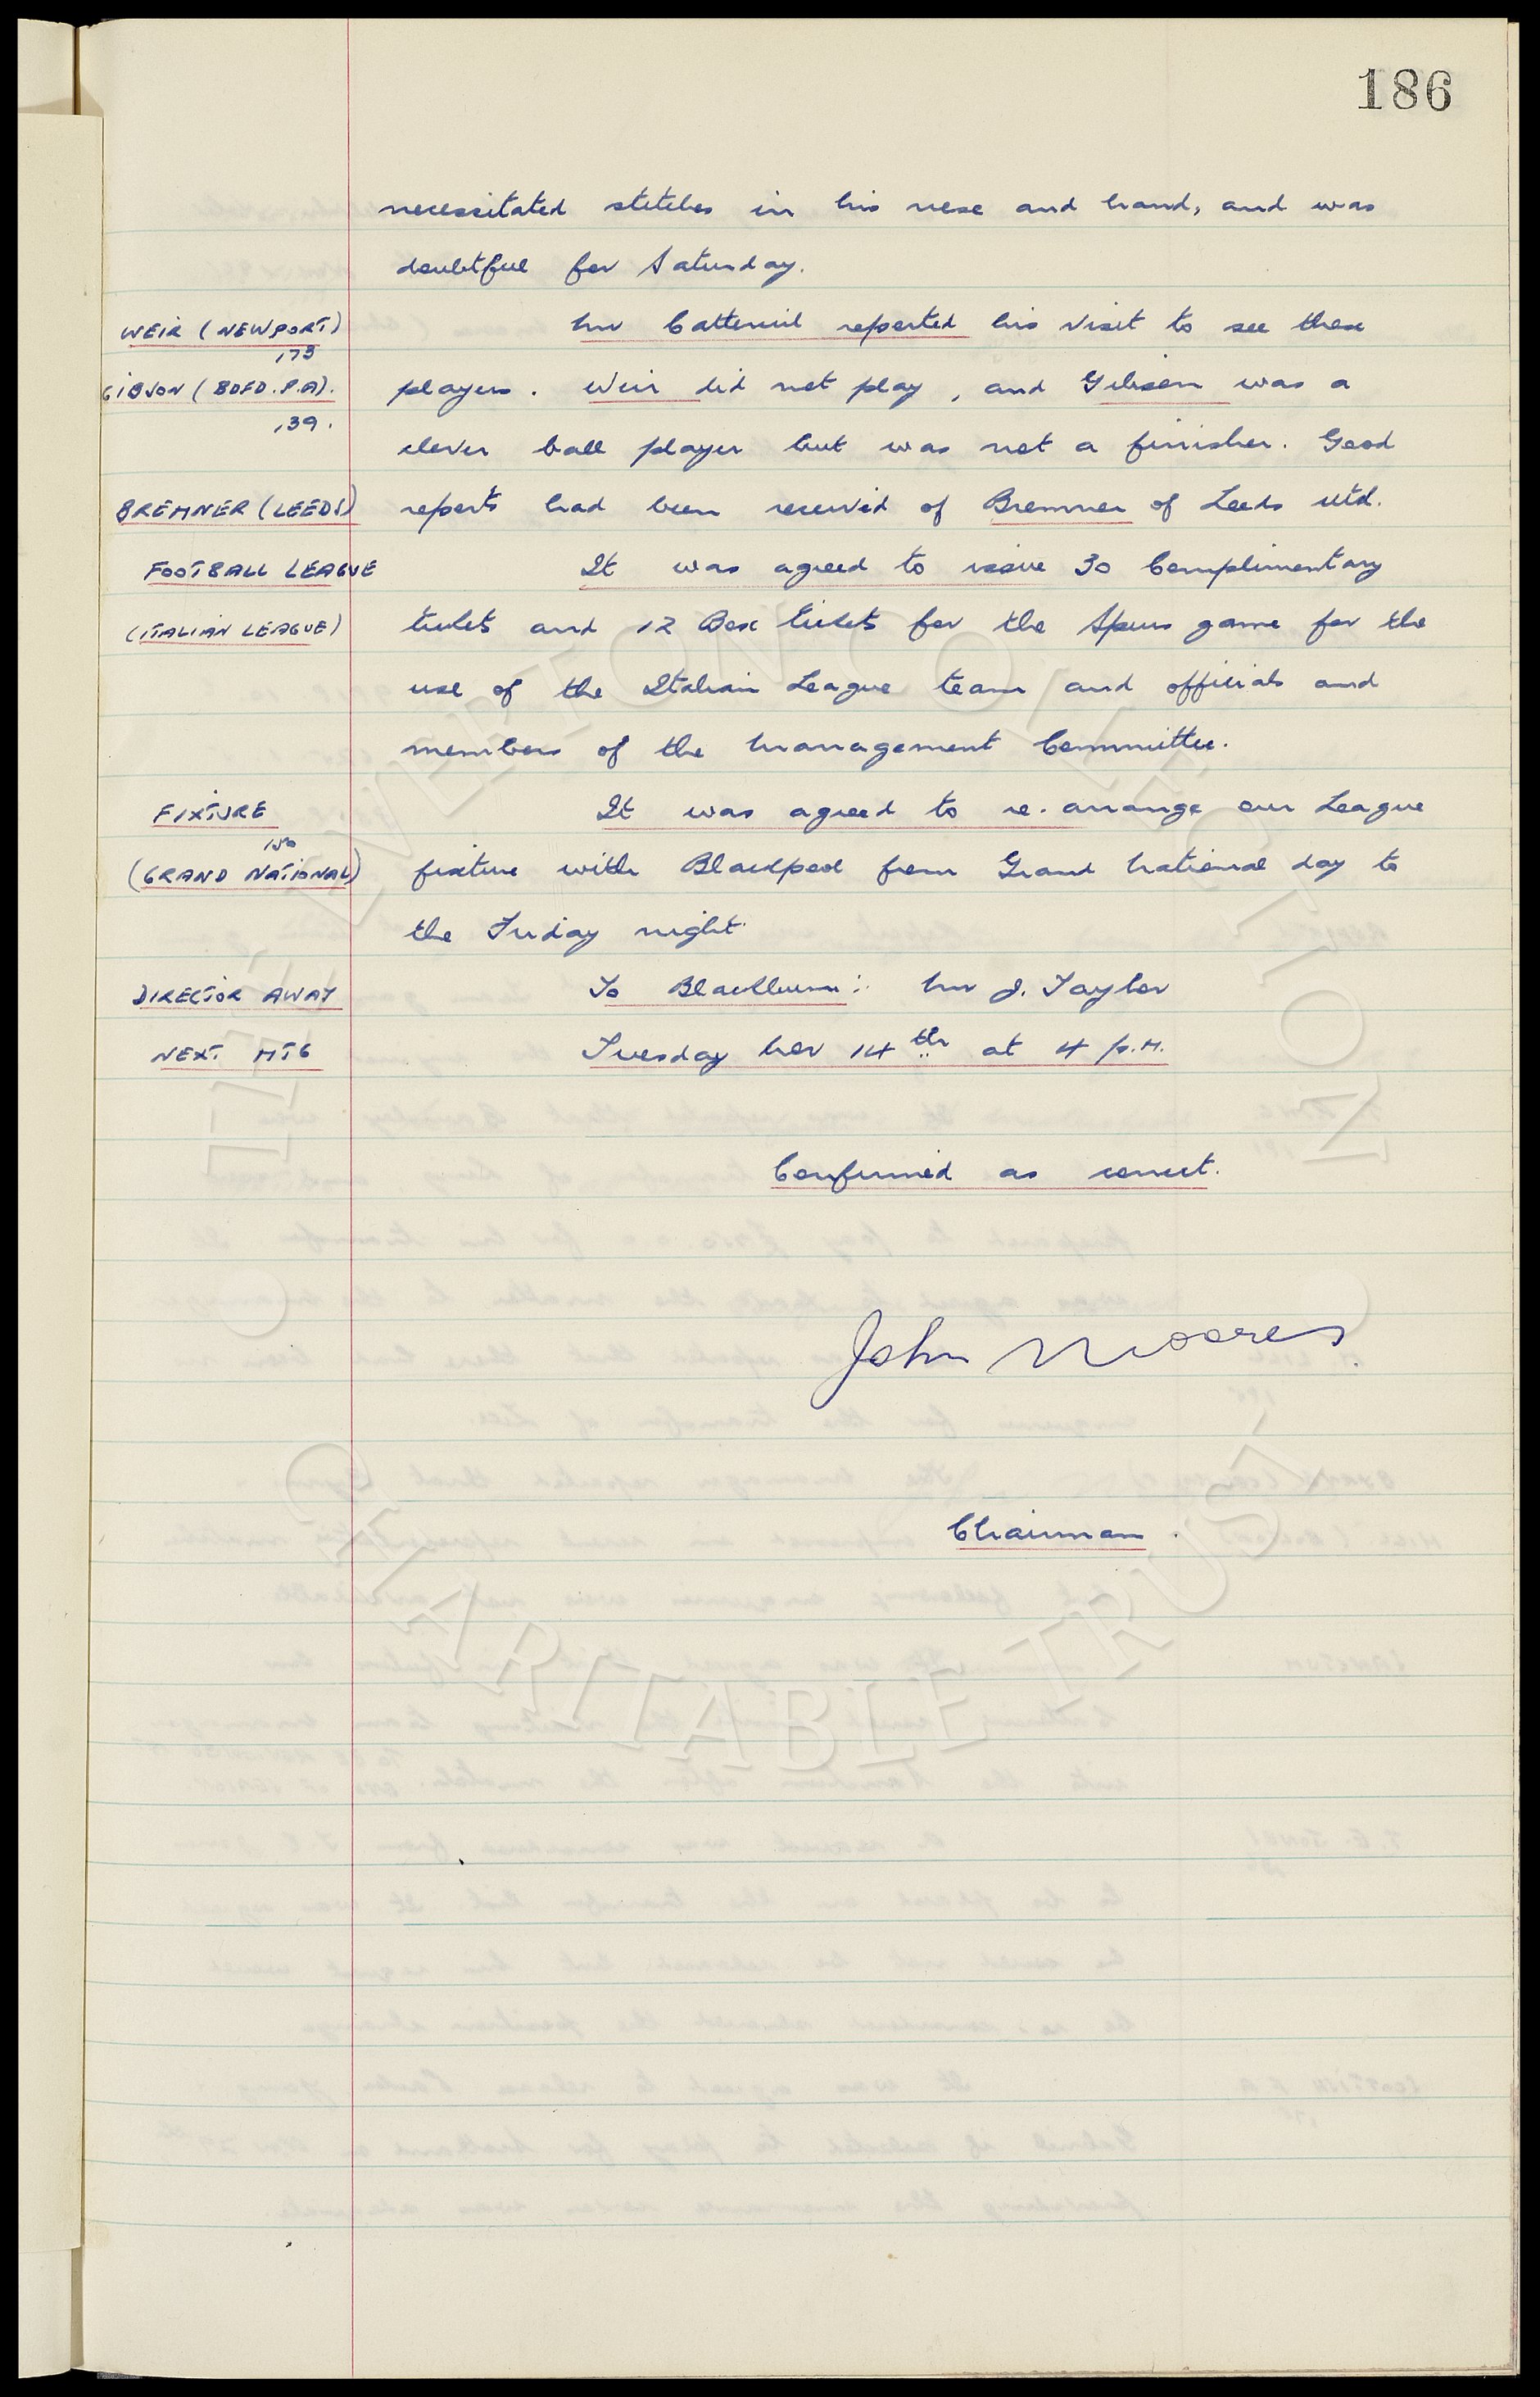 186
necessitated stitches in his nose and hand, and was
doubtful for Saturday.
WEIR (NEWPORT) Mr Catterick reported his visit to see these
173
GIBSON (BDFD. P.A). players. Weir did not play, and Gibson was a
139.
clever ball player but was not a finisher. Good
BREMNER (LEEDS) reports had been received of Bremner of Leeds Utd.
FOOTBALL LEAGUE It was agreed to issue 30 Complimentary
(ITALIAN LEAGUE) tickets and 12 Box tickets for the Spurs game for the
use of the Italian League team and officials and
members of the Management Committee.
FIXTURE It was agreed to re-arrange our League
180
(GRAND NATIONAL) fixture with Blackpool from Grand National day to
the Friday night.
DIRECTOR AWAY To Blackburn: Mr J. Taylor
NEXT MTG Tuesday Nov 14th at 4 P.M.
Confirmed as correct.
John Moores
Chairman.
EVERTON COLLECTION
CHARITABLE TRUST